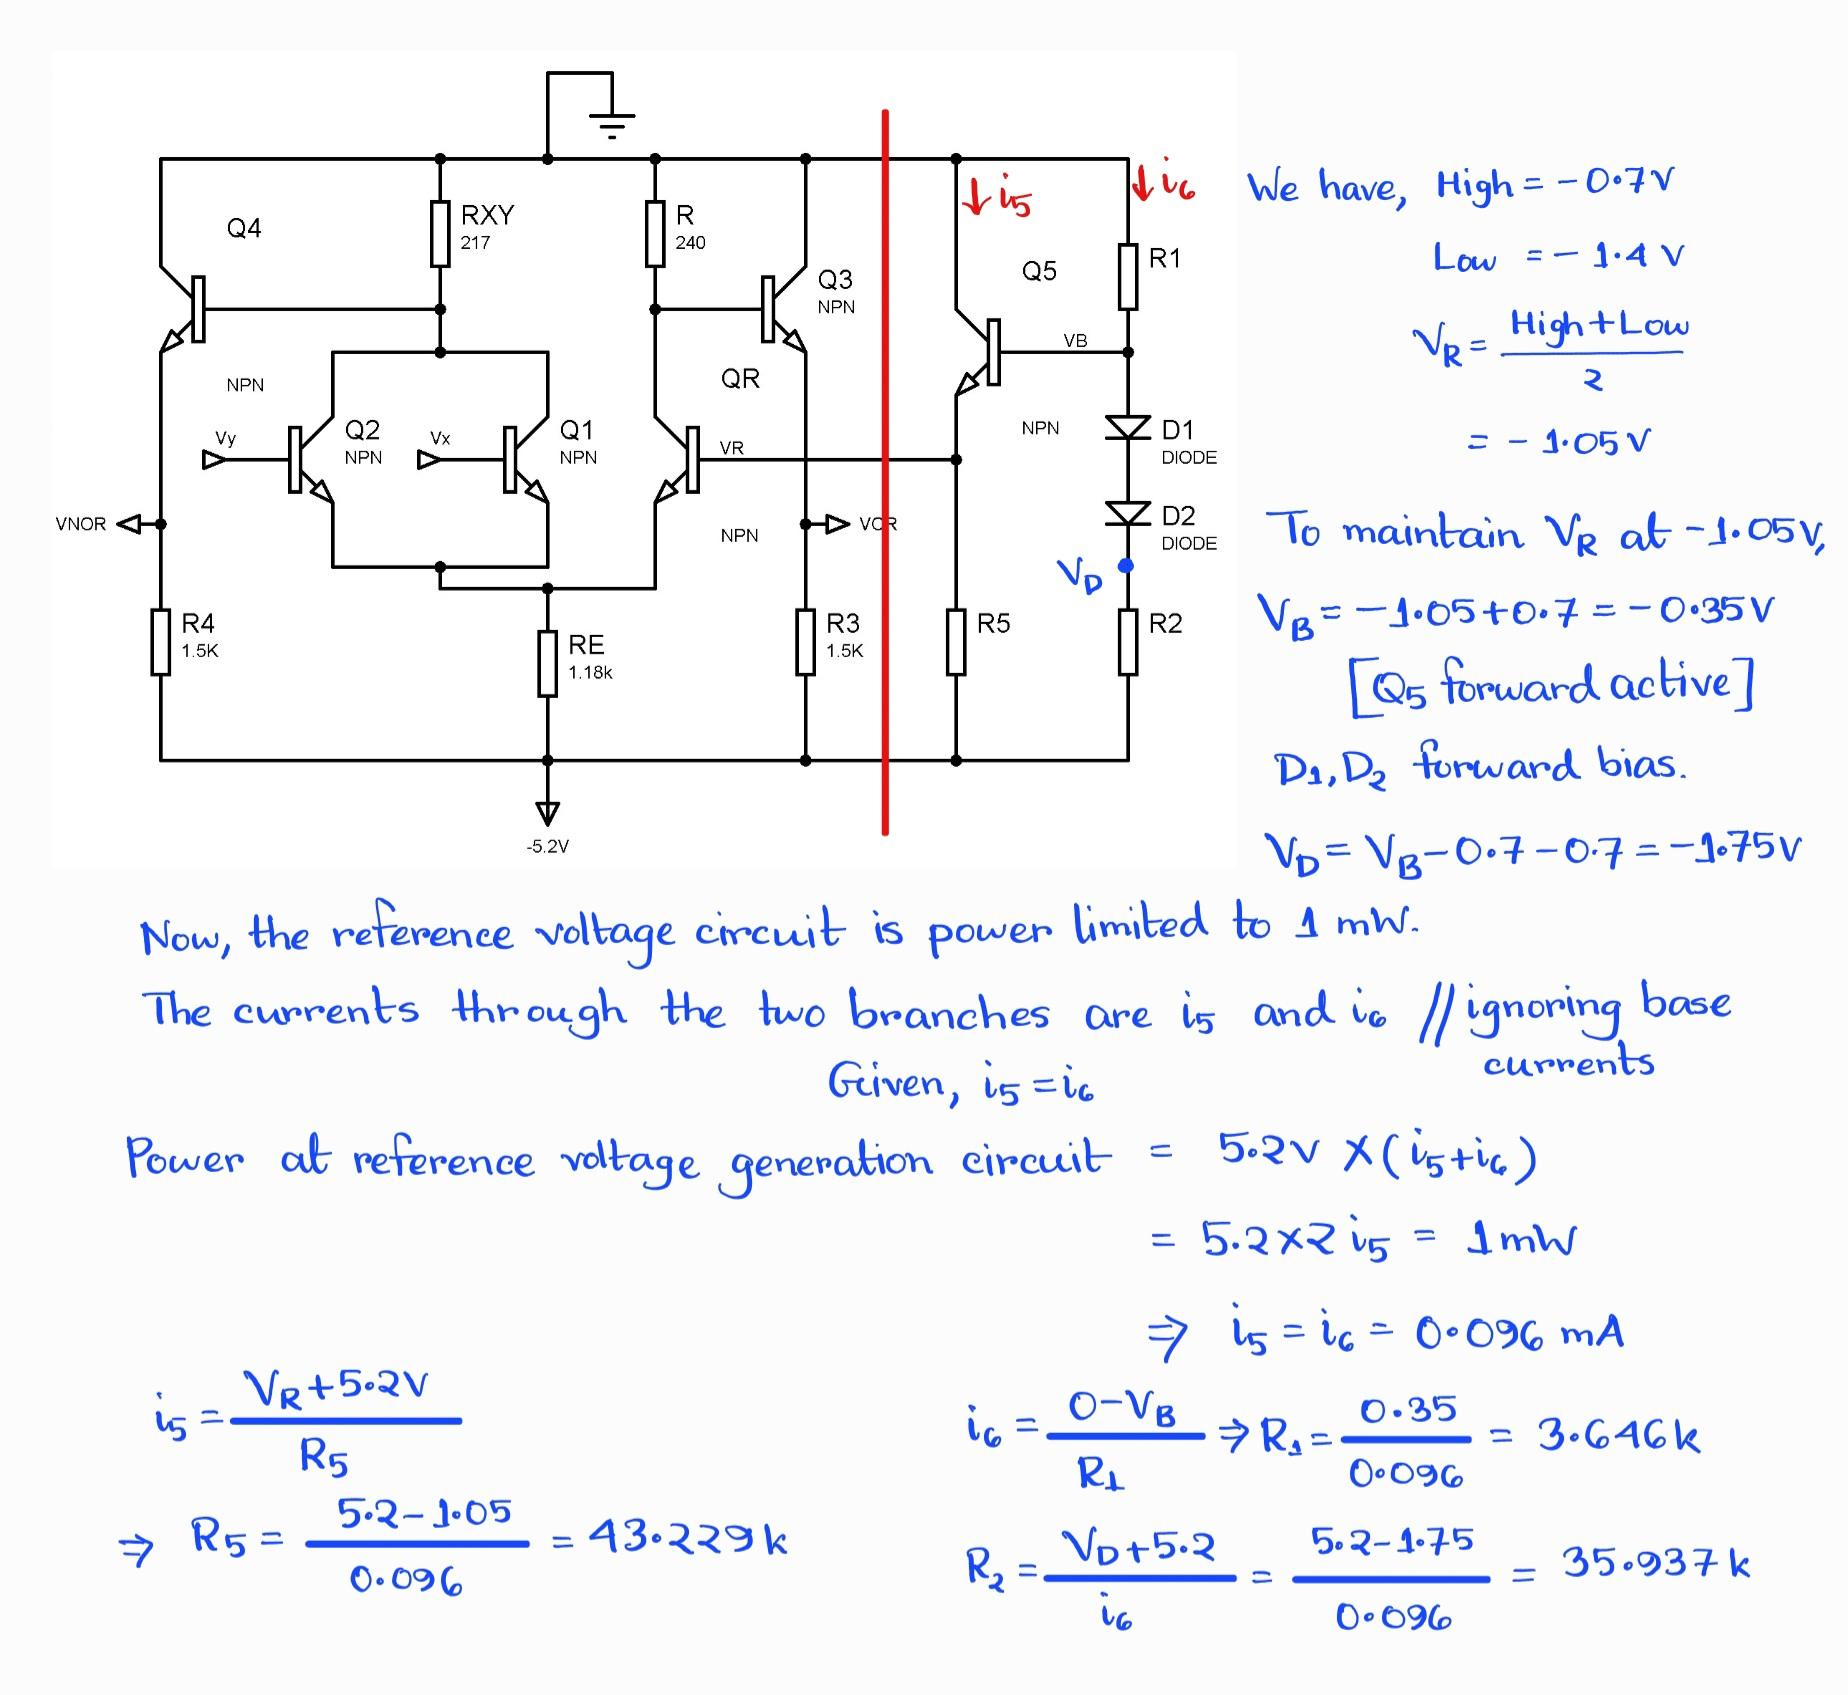 Q4
RXY
217
R
240
Q3
NPN
i5
i6
Q5
R1
VB
NPN
QR
Vy
Q2
NPN
Vx
Q1
NPN
VR
NPN
D1
DIODE
VNOR
NPN
VOR
D2
DIODE
VD
R4
1.5K
RE
1.18k
R3
1.5K
R5
R2
-5.2V
We have, High = -0.7V
Low = - 1.4 V
VR = High+Low / 2
= - 1.05V
To maintain VR at -1.05V,
VB = -1.05+0.7 = -0.35V
[Q5 forward active]
D1, D2 forward bias.
VD = VB-0.7-0.7 = -1.75V
Now, the reference voltage circuit is power limited to 1 mW.
The currents through the two branches are i5 and i6 // ignoring base
currents
Given, i5 = i6
Power at reference voltage generation circuit = 5.2V X (i5+i6)
= 5.2×2 i5 = 1mW
⇒ i5 = i6 = 0.096 mA
i5 = VR+5.2V / R5
⇒ R5 = 5.2-1.05 / 0.096 = 43.229k
i6 = 0-VB / R1 ⇒ R1 = 0.35 / 0.096 = 3.646k
R2 = VD+5.2 / i6 = 5.2-1.75 / 0.096 = 35.937k